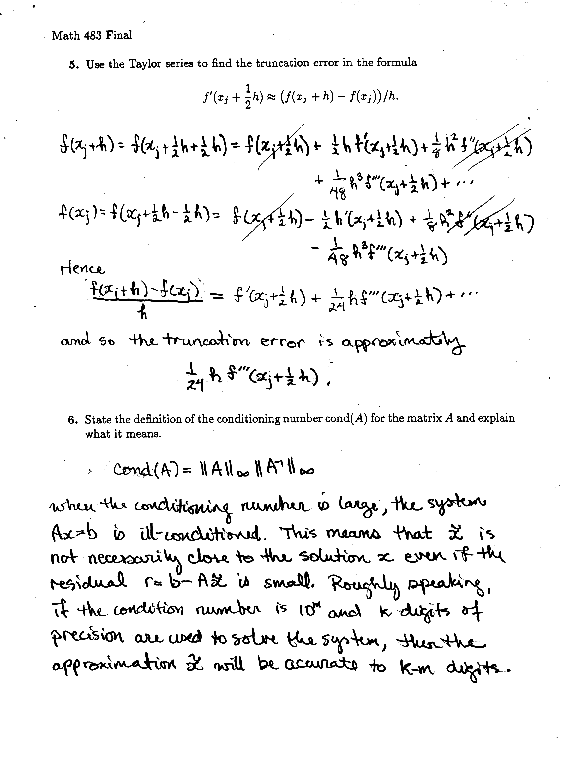 Math 483 Final
5. Use the Taylor series to find the truncation error in the formula
f'(x_j + 1/2 h) ≈ (f(x_j + h) − f(x_j))/h.
f(x_j+h) = f(x_j+1/2h+1/2h) = f(x_j+1/2h) + 1/2 h f'(x_j+1/2h) + 1/8 h² f''(x_j+1/2h)
+ 1/48 h³ f'''(x_j+1/2h) + ...
f(x_j) = f(x_j+1/2h − 1/2h) = f(x_j+1/2h) − 1/2 h'(x_j+1/2h) + 1/8 h² f''(x_j+1/2h)
− 1/48 h³ f'''(x_j+1/2h)
Hence
(f(x_j+h) − f(x_j))/h = f'(x_j+1/2h) + 1/24 h f'''(x_j+1/2h) + ...
and so the truncation error is approximately
1/24 h f'''(x_j+1/2h).
6. State the definition of the conditioning number cond(A) for the matrix A and explain
what it means.
Cond(A) = ||A||∞ ||A⁻¹||∞
when the conditioning number is large, the system
Ax=b is ill-conditioned. This means that x̃ is
not necessarily close to the solution x even if the
residual r = b − Ax̃ is small. Roughly speaking,
if the condition number is 10ᵐ and k digits of
precision are used to solve the system, then the
approximation x̃ will be accurate to k-m digits.